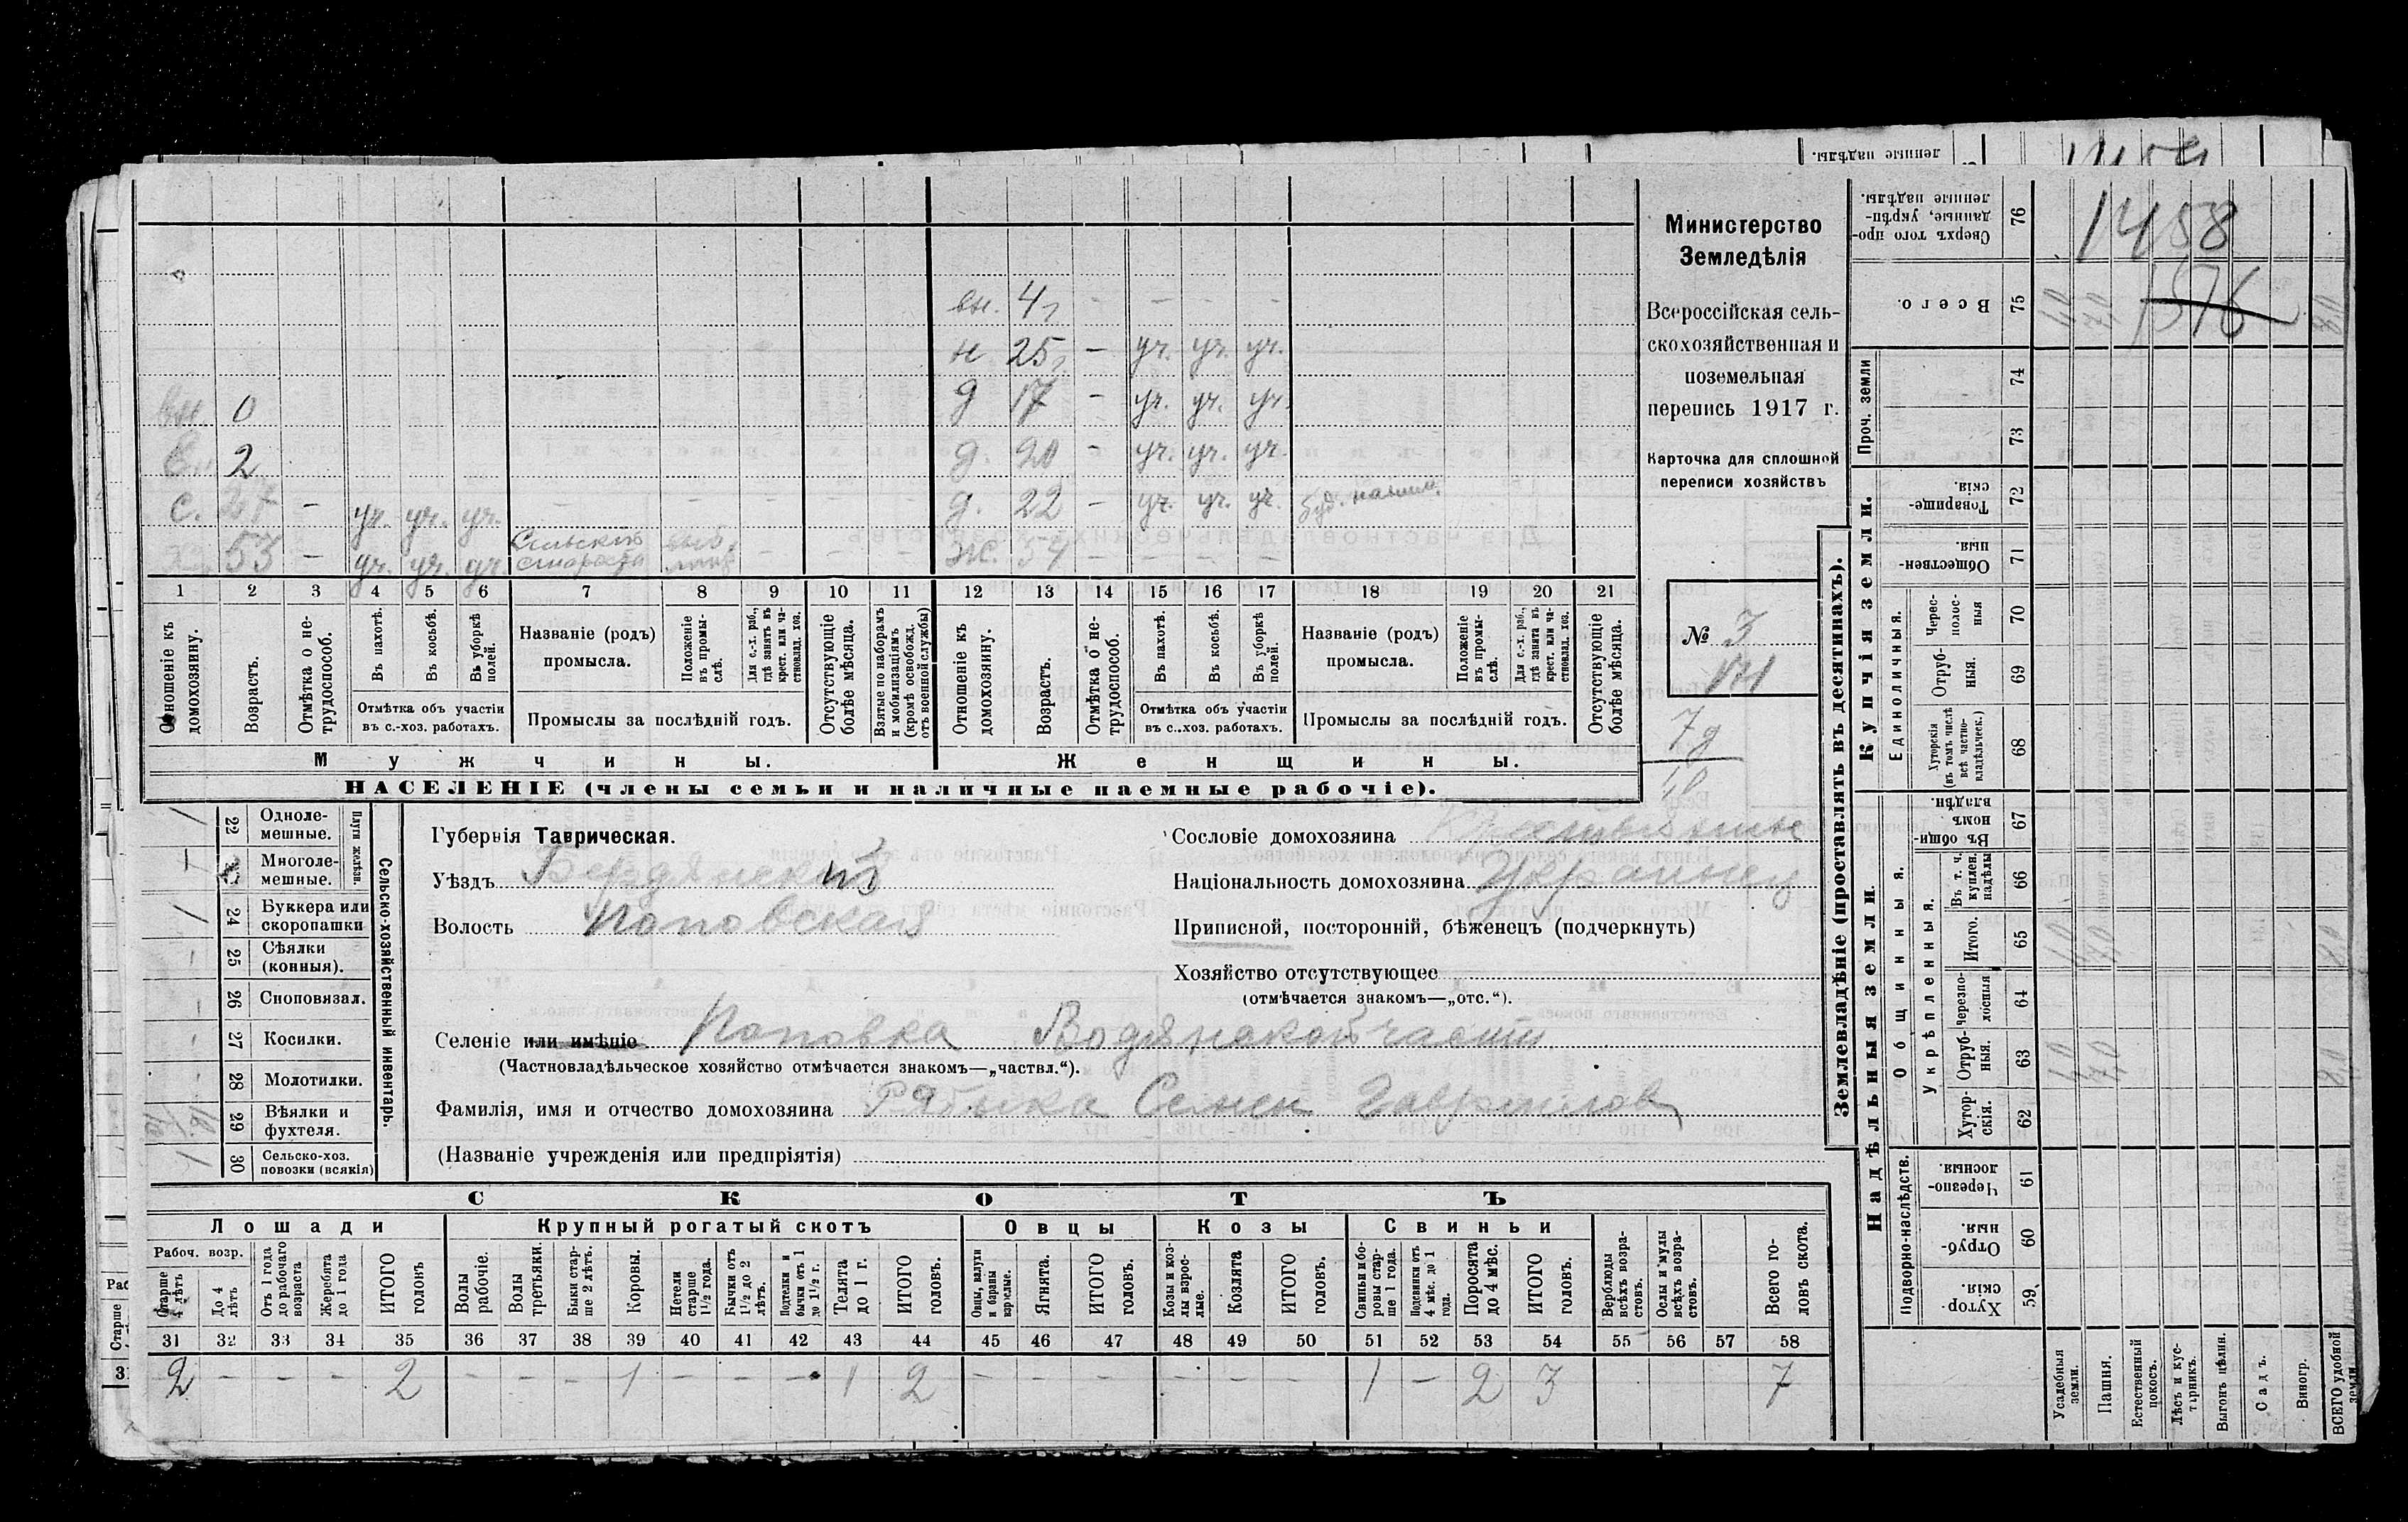 ленные надѣлы.
1458
вн. 4
н 25 - уч. уч. уч.
вн. 0
д 17 - уч. уч. уч.
2
д. 20 - уч. уч. уч.
с. 27 - уч. уч. уч.
д. 22 - уч. уч. уч.
53 - уч. уч. уч. Сельский староста
ж. 54 - - - -
1 2 3 4 5 6 7 8 9 10 11 12 13 14 15 16 17 18 19 20 21
Отношеніе къ домохозяину.
Возрастъ.
Отмѣтка о не-трудоспособ.
Въ пахотѣ.
Въ косьбѣ.
Въ уборкѣ полей.
Отмѣтка объ участіи въ с.-хоз. работахъ.
Названіе (родъ) промысла.
Положеніе въ промы-слѣ.
Для с.-х. раб., гдѣ занятъ въ крест. или ча-стновлад. хоз.
Промыслы за послѣдній годъ.
Отсутствующіе болѣе мѣсяца.
Взятые по наборамъ и мобилизаціямъ (кромѣ освобожд. отъ военной службы)
Отношеніе къ домохозяину.
Возрастъ.
Отмѣтка о не-трудоспособ.
Въ пахотѣ.
Въ косьбѣ.
Въ уборкѣ полей.
Отмѣтка объ участіи въ с.-хоз. работахъ.
Названіе (родъ) промысла.
Положеніе въ промы-слѣ.
Для с.-х. раб., гдѣ занята въ крест. или ча-стновлад. хоз.
Промыслы за послѣдній годъ.
Отсутствующіе болѣе мѣсяца.
Мужчины. Женщины.
НАСЕЛЕНІЕ (члены семьи и наличные наемные рабочіе).
Министерство
Земледѣлія
Всероссійская сель-
скохозяйственная и
поземельная
перепись 1917 г.
Карточка для сплошной
переписи хозяйствъ
№ 3
7д
10
Сельско-хозяйственный инвентарь.
Плуги желѣзн.
22 Одноле-мешные. 1
23 Многоле-мешные.
24 Буккера или скоропашки 1
25 Сѣялки (конныя). -
26 Сноповязал. -
27 Косилки. -
28 Молотилки. -
29 Вѣялки и фухтеля.
30 Сельско-хоз. повозки (всякія) 1
Губернія Таврическая.
Уѣздъ Бердянский
Волость Поповская
Селеніе или имѣніе Поповка Водянской части
(Частновладѣльческое хозяйство отмѣчается знакомъ—„частвл.“).
Фамилія, имя и отчество домохозяина Рябыка Семен Гаврилов
(Названіе учрежденія или предпріятія)
Сословіе домохозяина
Національность домохозяина Украинец
Приписной, посторонній, бѣженецъ (подчеркнуть)
Хозяйство отсутствующее
(отмѣчается знакомъ—„отс.“).
СКОТЪ
Лошади Крупный рогатый скотъ Овцы Козы Свиньи
Рабоч. возр.
Старше 4 лѣтъ
До 4 лѣтъ
Отъ 1 года до рабочаго возраста
Жеребята до 1 года
ИТОГО головъ
Волы рабочіе.
Волы третьяки.
Быки стар-ше 2 лѣтъ.
Коровы.
Нетели старше 1½ года.
Бычки отъ 1½ до 2 лѣтъ.
Подтелки и бычки отъ 1 до 1½ г.
Телята до 1 г.
ИТОГО головъ.
Овцы, валухи и бараны взрослые.
Ягнята.
ИТОГО головъ.
Козы и коз-лы взрос-лые.
Козлята
ИТОГО головъ.
Свиньи и бо-ровы стар-ше 1 года.
Подсвинки отъ 4 мѣс. до 1 года.
Поросята до 4 мѣс.
ИТОГО головъ.
Верблюды всѣхъ возра-стовъ.
Ослы и мулы всѣхъ возра-стовъ.
Всего го-ловъ скота.
31 32 33 34 35 36 37 38 39 40 41 42 43 44 45 46 47 48 49 50 51 52 53 54 55 56 57 58
2 - - - 2 - - - 1 - - - 1 2 - - - - - - 1 - 2 3 7
Землевладѣніе (проставлять въ десятинахъ).
Купчія земли.
Сверхъ того про-данные, укрѣп-ленные надѣлы. 76
Всего. 75
1576
Проч. земли 74 73
Товарище-скія. 72
Обществен-ныя. 71
Единоличныя.
Черес-полос-ныя 70
Отруб-ныя. 69
Хуторскія (въ томъ числѣ всѣ частно-владѣльческ.) 68
Надѣльныя земли.
Общинныя.
Въ общи-номъ владѣн. 67
Укрѣпленныя.
Въ т. ч. куплен. надѣлы 66
Итого. 65
Черезпо-лосныя 64
Отруб-ныя. 63
Хутор-скія. 62
Подворно-наслѣдств.
Черезпо-лосныя. 61
Отруб-ныя. 60
Хутор-скія. 59
Усадебныя земли.
Пашня.
Естественный покосъ.
Лѣсъ и кус-тарникъ.
Выгонъ цѣлин.
Садъ.
Виногр.
ВСЕГО удобной земли